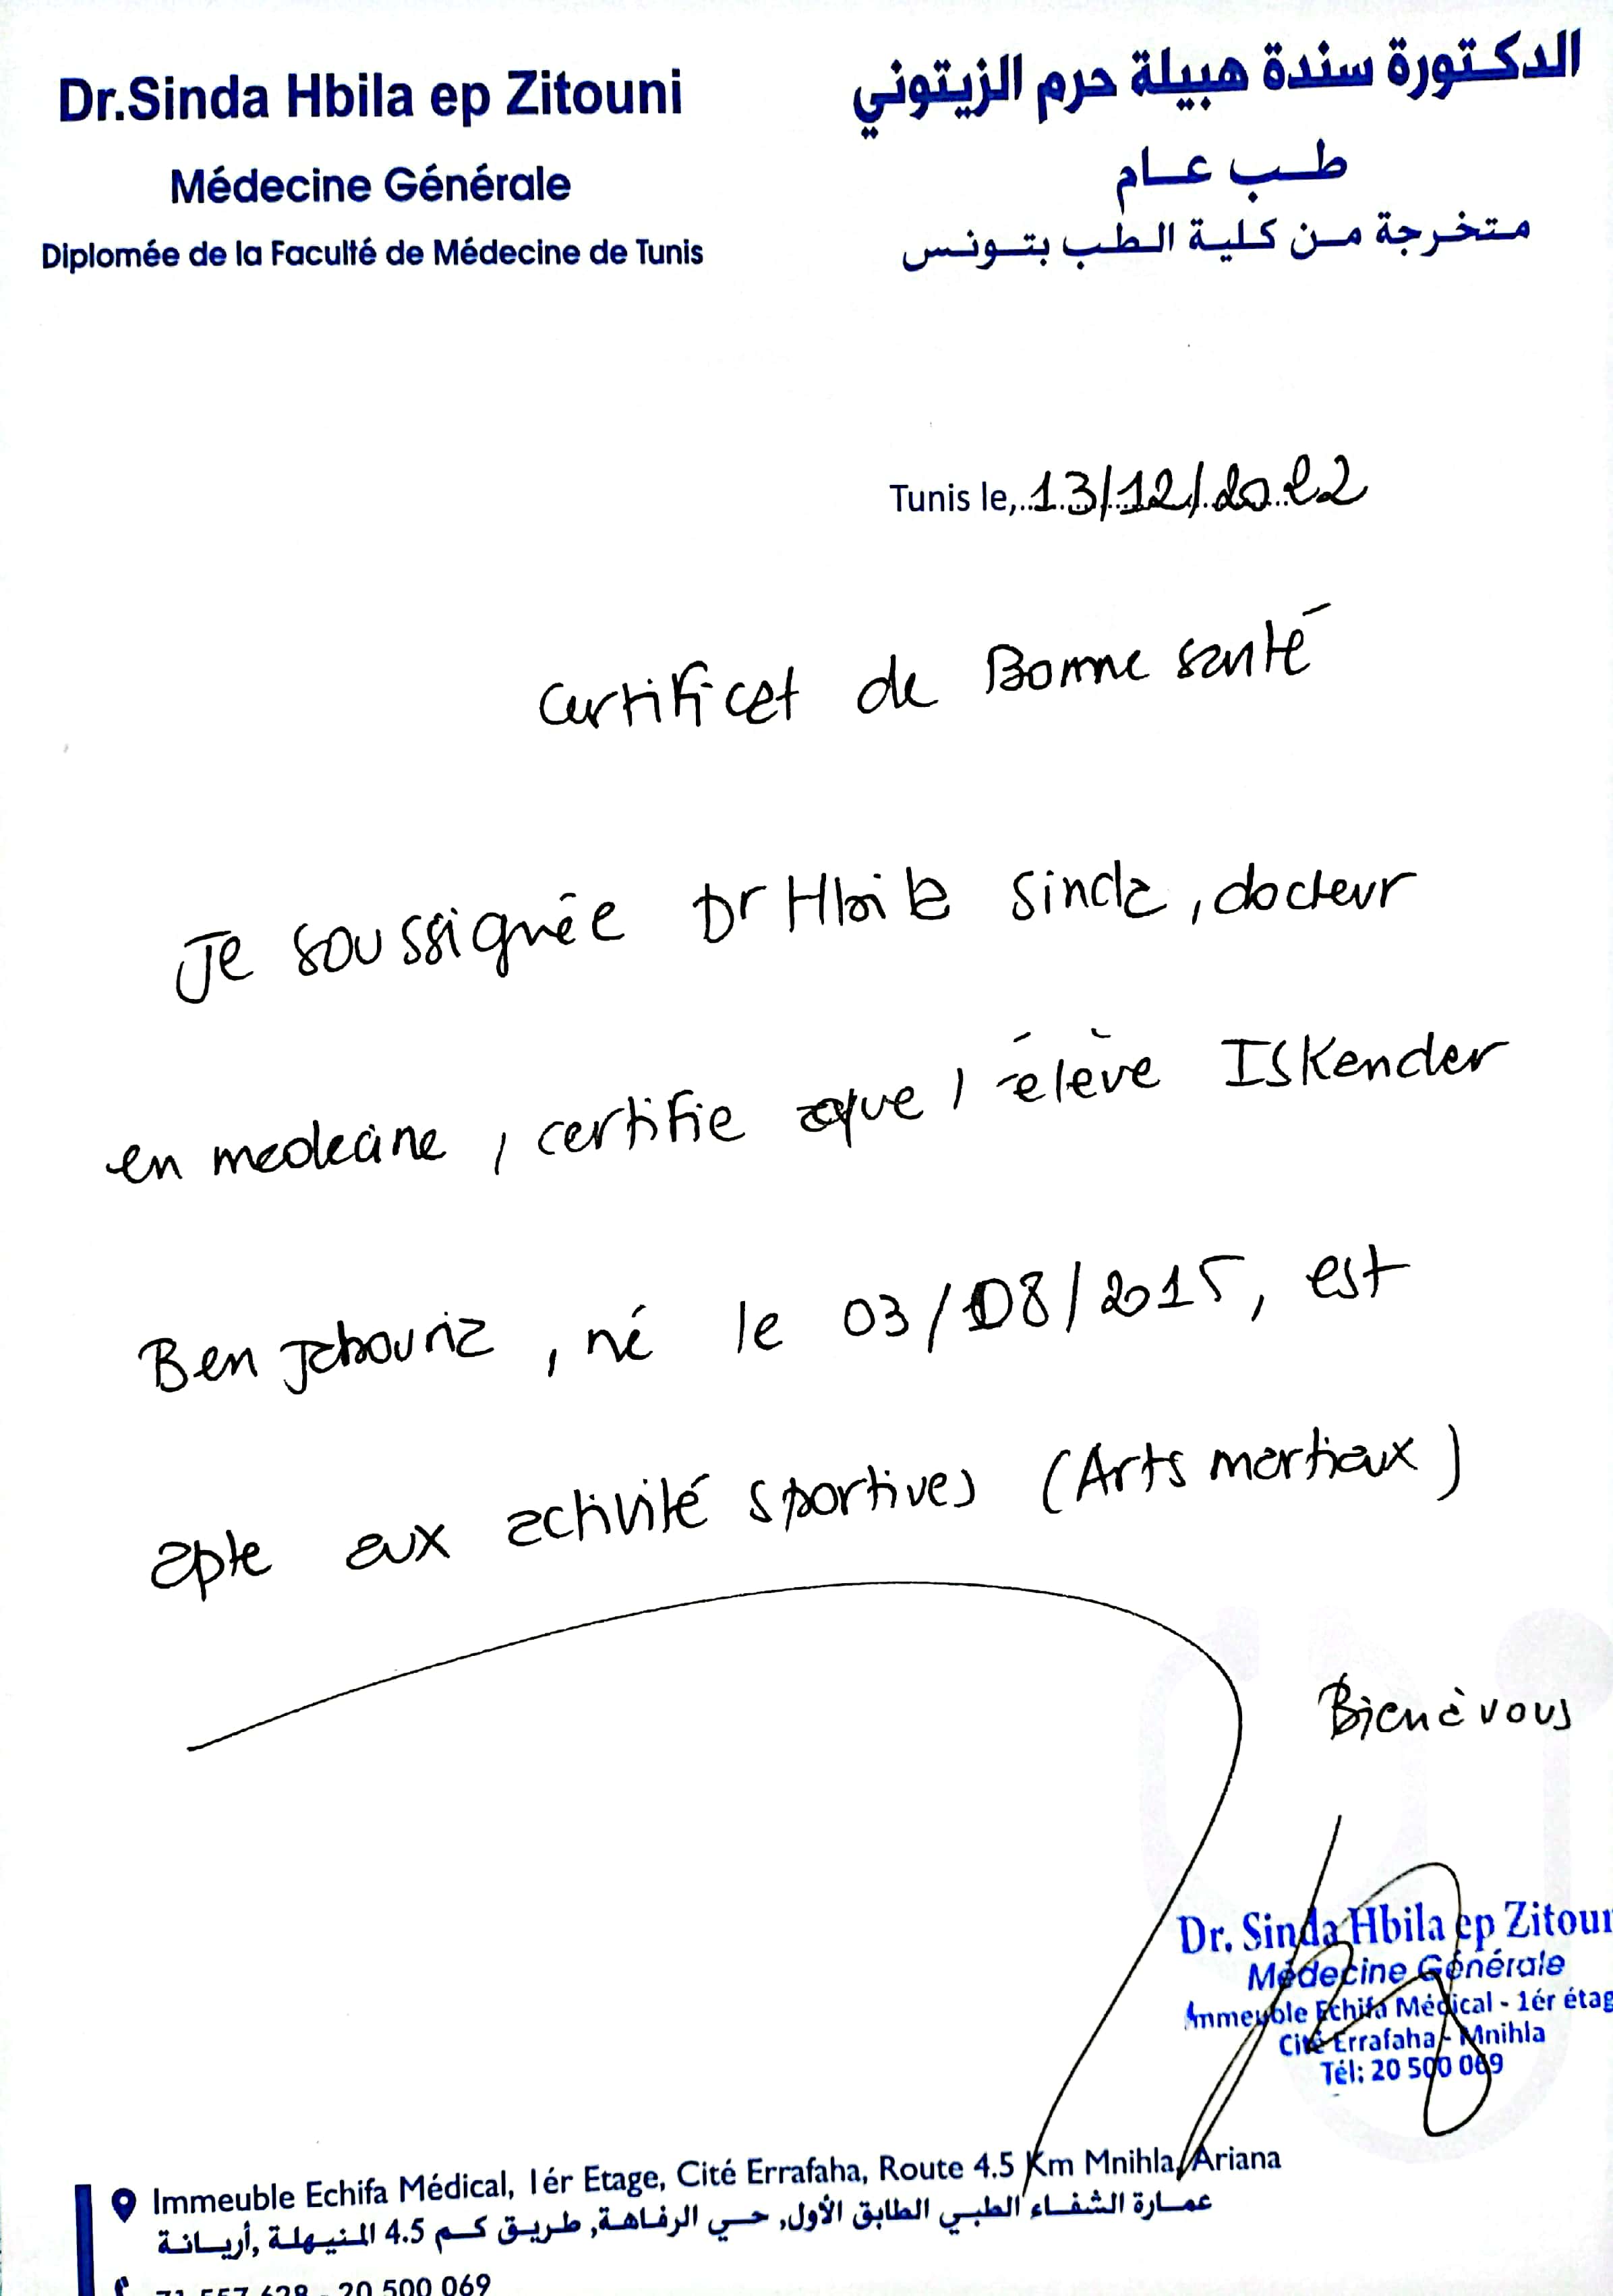 Dr.Sinda Hbila ep Zitouni
Médecine Générale
Diplomée de la Faculté de Médecine de Tunis
الدكتورة سندة هبيلة حرم الزيتوني
طب عام
متخرجة من كلية الطب بتونس
Tunis le, 13/12/2022
Certificat de Bonne santé
Je soussignée Dr Hbila Sinda, docteur
en medecine, certifie que l'élève Iskender
Ben Jabouria, né le 03/08/2015, est
apte aux activité sportives (Arts martiaux)
Bien à vous
Dr. Sinda Hbila ep Zitour
Médecine Générale
Immeuble Echifa Médical - 1ér étag
Cité Errafaha - Mnihla
Tél: 20 500 069
Immeuble Echifa Médical, 1ér Etage, Cité Errafaha, Route 4.5 Km Mnihla, Ariana
عمارة الشفاء الطبي الطابق الأول, حي الرفاهة, طريق كم 4.5 المنيهلة ,أريانة
71 557 628 - 20 500 069